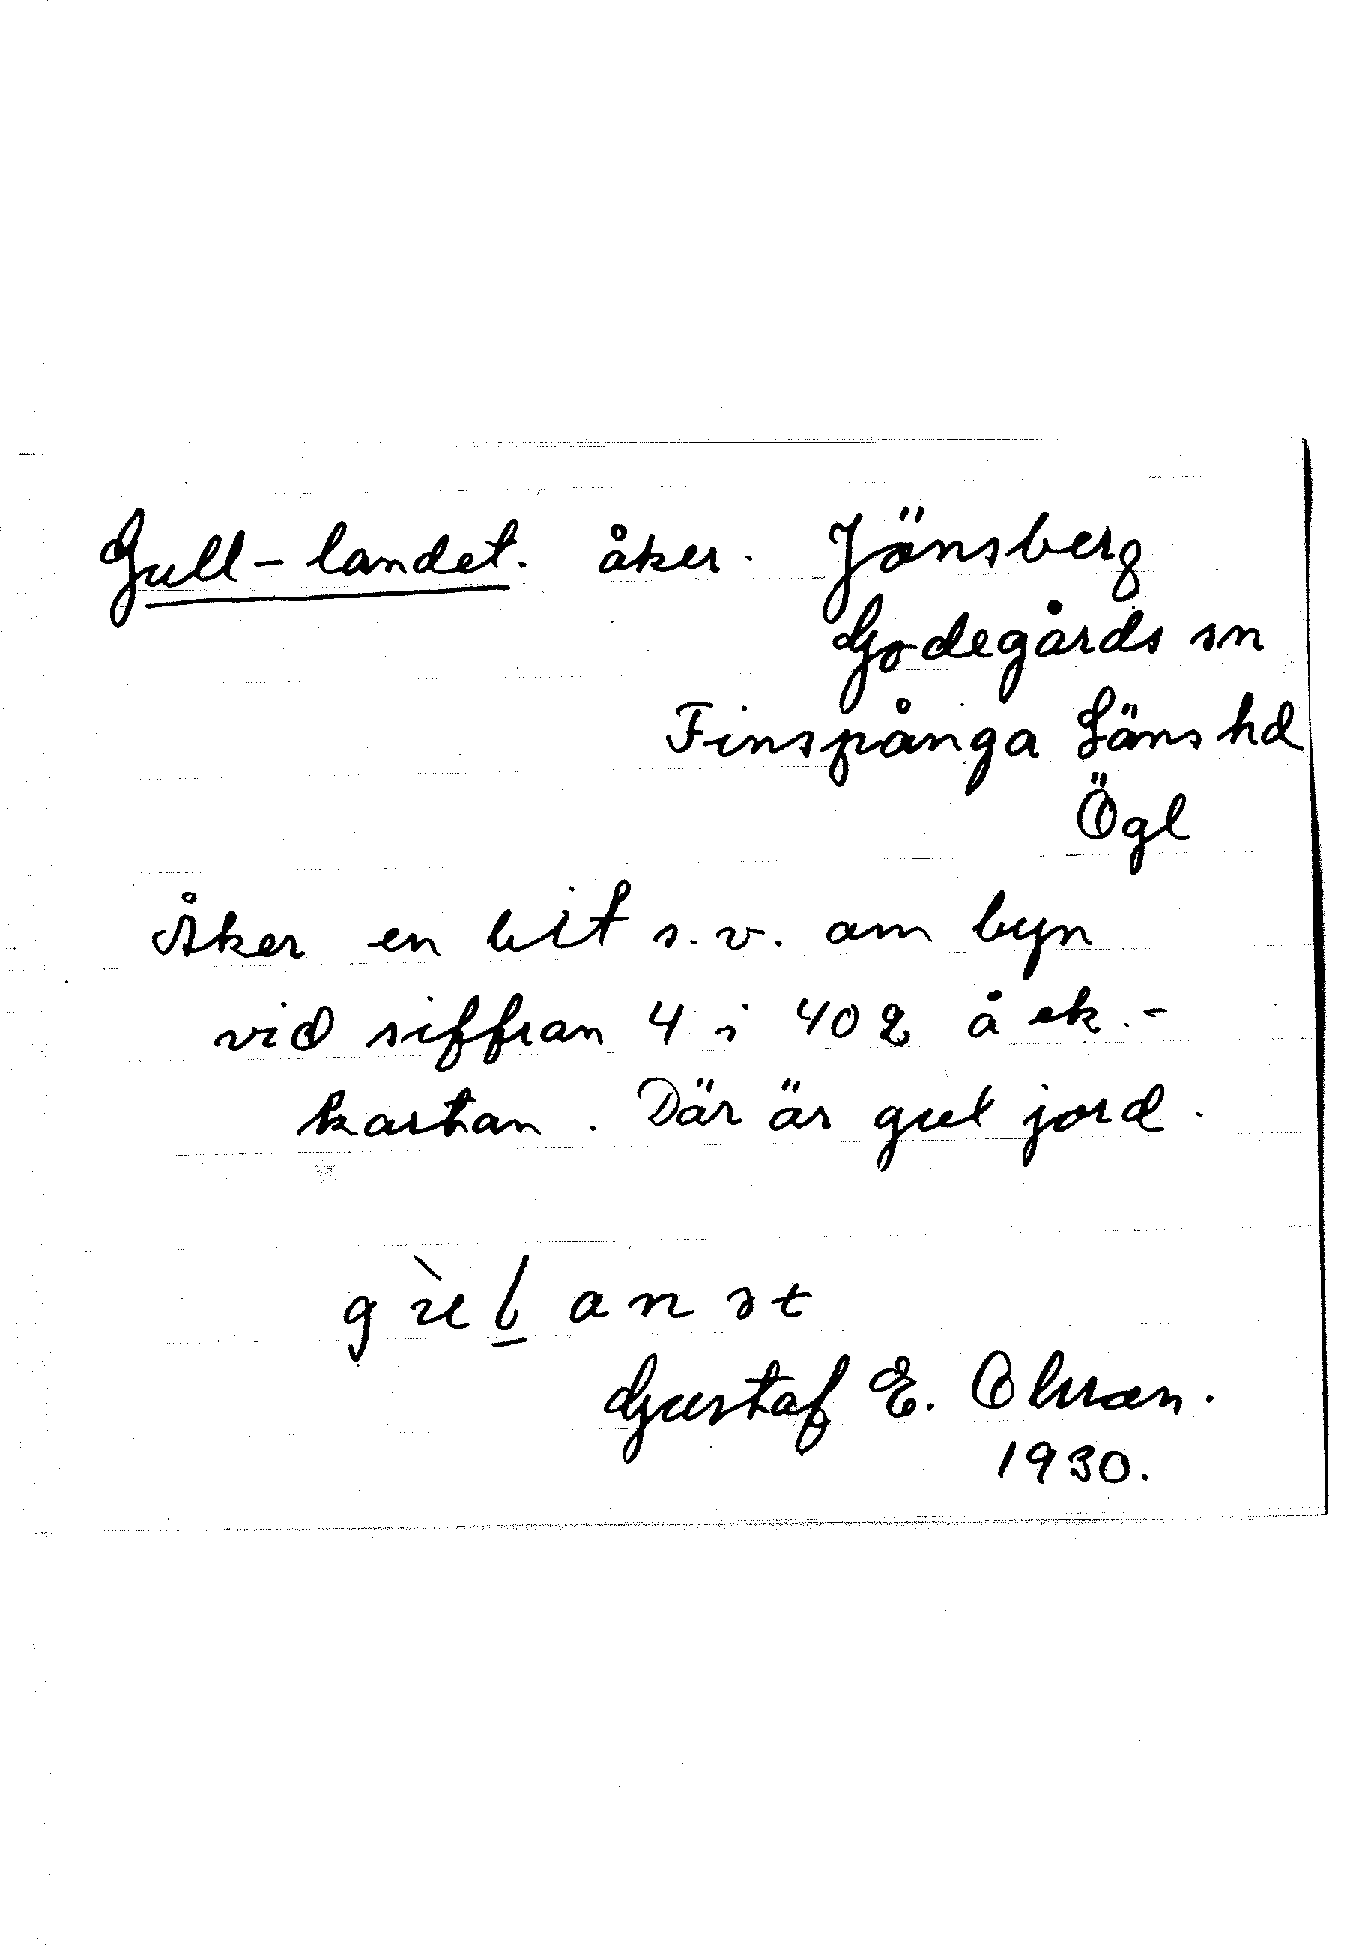 Gull-landet. åker. Jönsberg
Godegårds sn
Finspånga Läns hd
Ögl
Åker en bit s.v. om byn
vid siffran 4 i 402 å ek.-
kartan. Där är gul jord.
Gustaf E. Olsson.
1930.